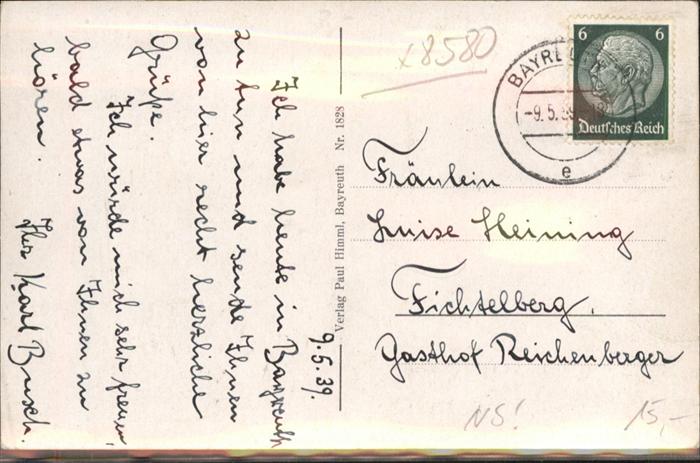 9.5.39.
Ich habe heute in Bayreuth
zu tun und sende Ihnen
von hier recht herzliche
Grüße.
Ich würde mich sehr freuen,
bald etwas von Ihnen zu
hören.
Ihr Karl Busch.
Verlag Paul Himml, Bayreuth Nr. 1828
x8580
BAYREU
-9.5.39
e
6 6
Deutsches Reich
Fräulein
Luise Heining
Fichtelberg.
Gasthof Reichenberger
NS!
15,-